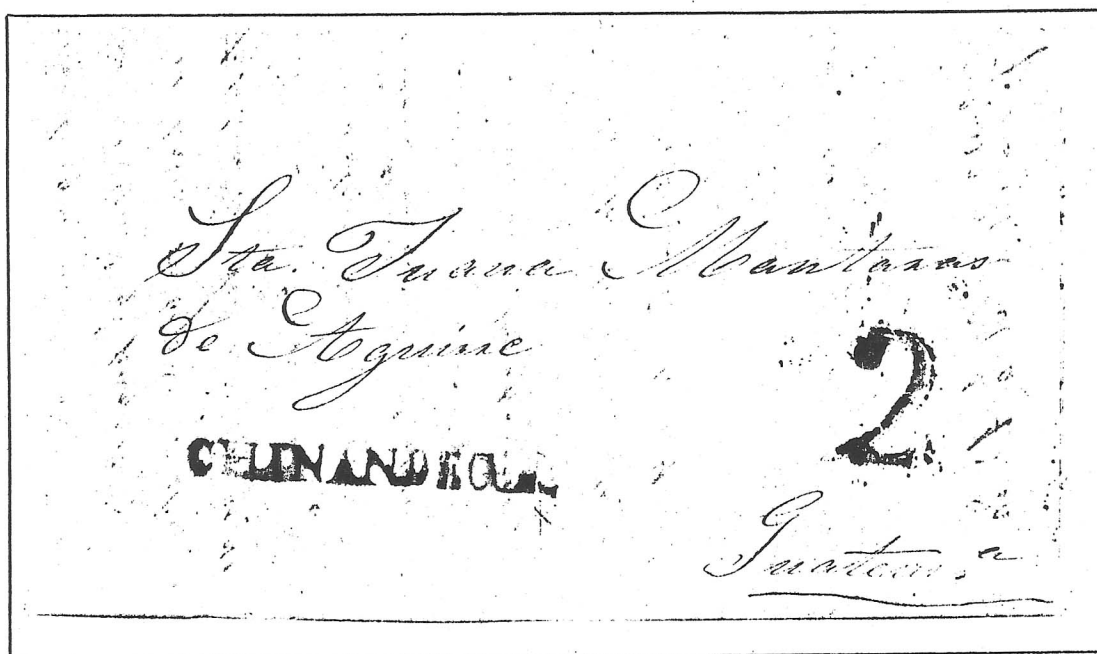 Sta. Juana Mantaras
de Aguirre
CHINANDEGA
2
Guatem.a